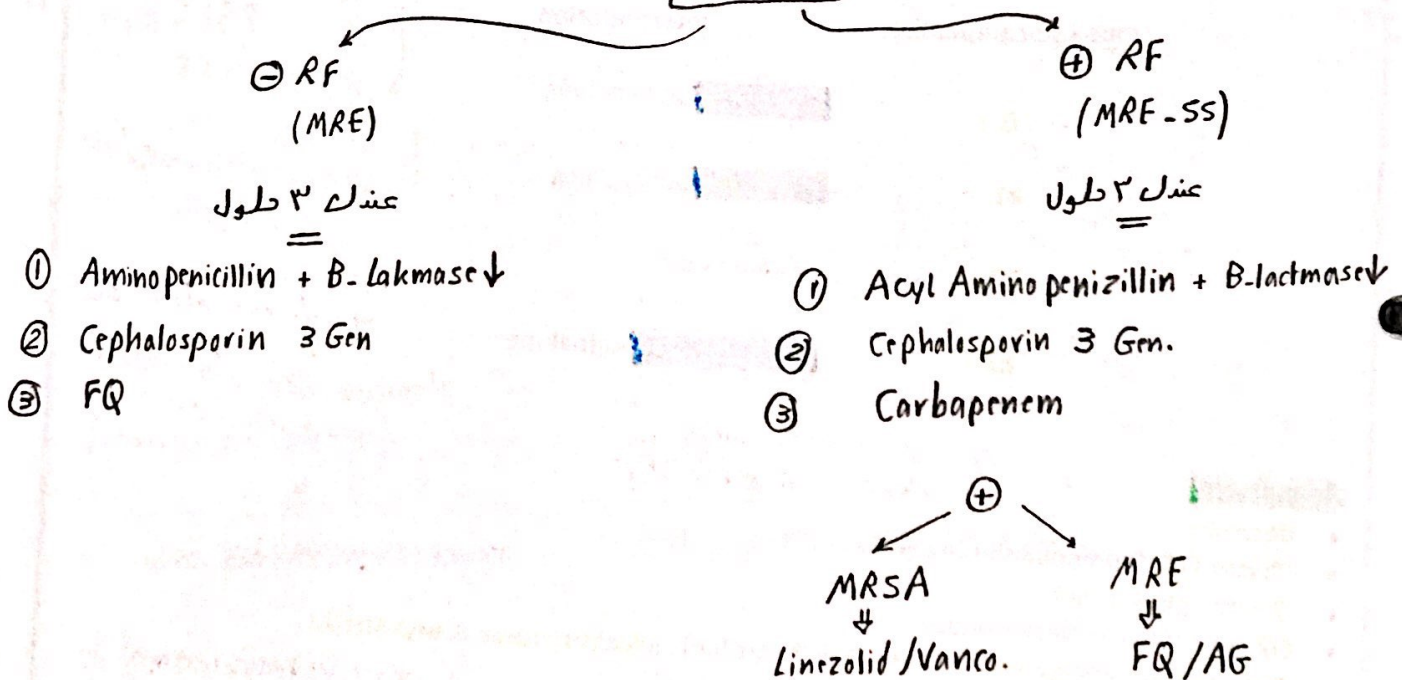 ⊖ RF
(MRE)
عندك ٣ حلول
① Aminopenicillin + B-Lakmase↓
② Cephalosporin 3 Gen
③ FQ
⊕ RF
(MRE-SS)
عندك ٣ حلول
① Acyl Amino penizillin + B-lactmase↓
② Cephalosporin 3 Gen.
③ Carbapenem
⊕
MRSA
⇓
Linezolid / Vanco.
MRE
⇓
FQ / AG